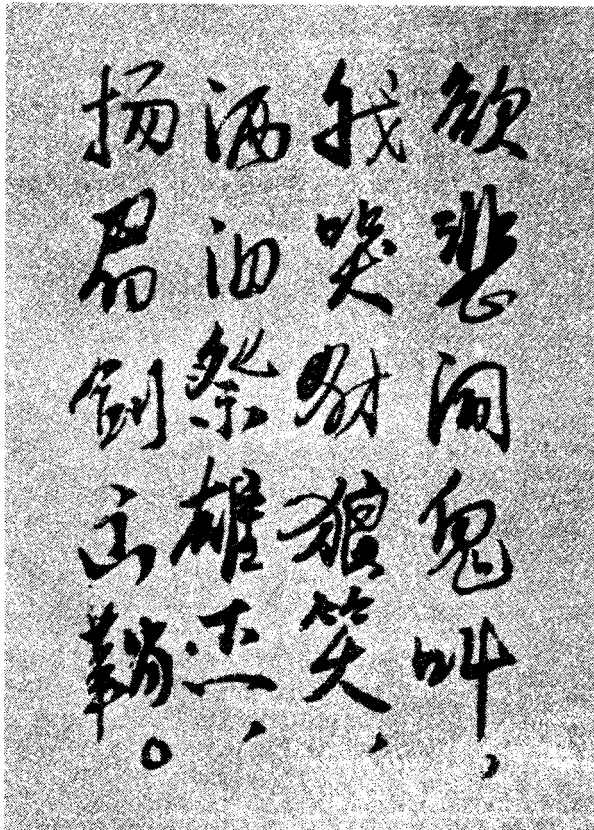 欲悲闻鬼叫，
我哭豺狼笑、
洒泪祭雄杰、
扬眉剑出鞘。